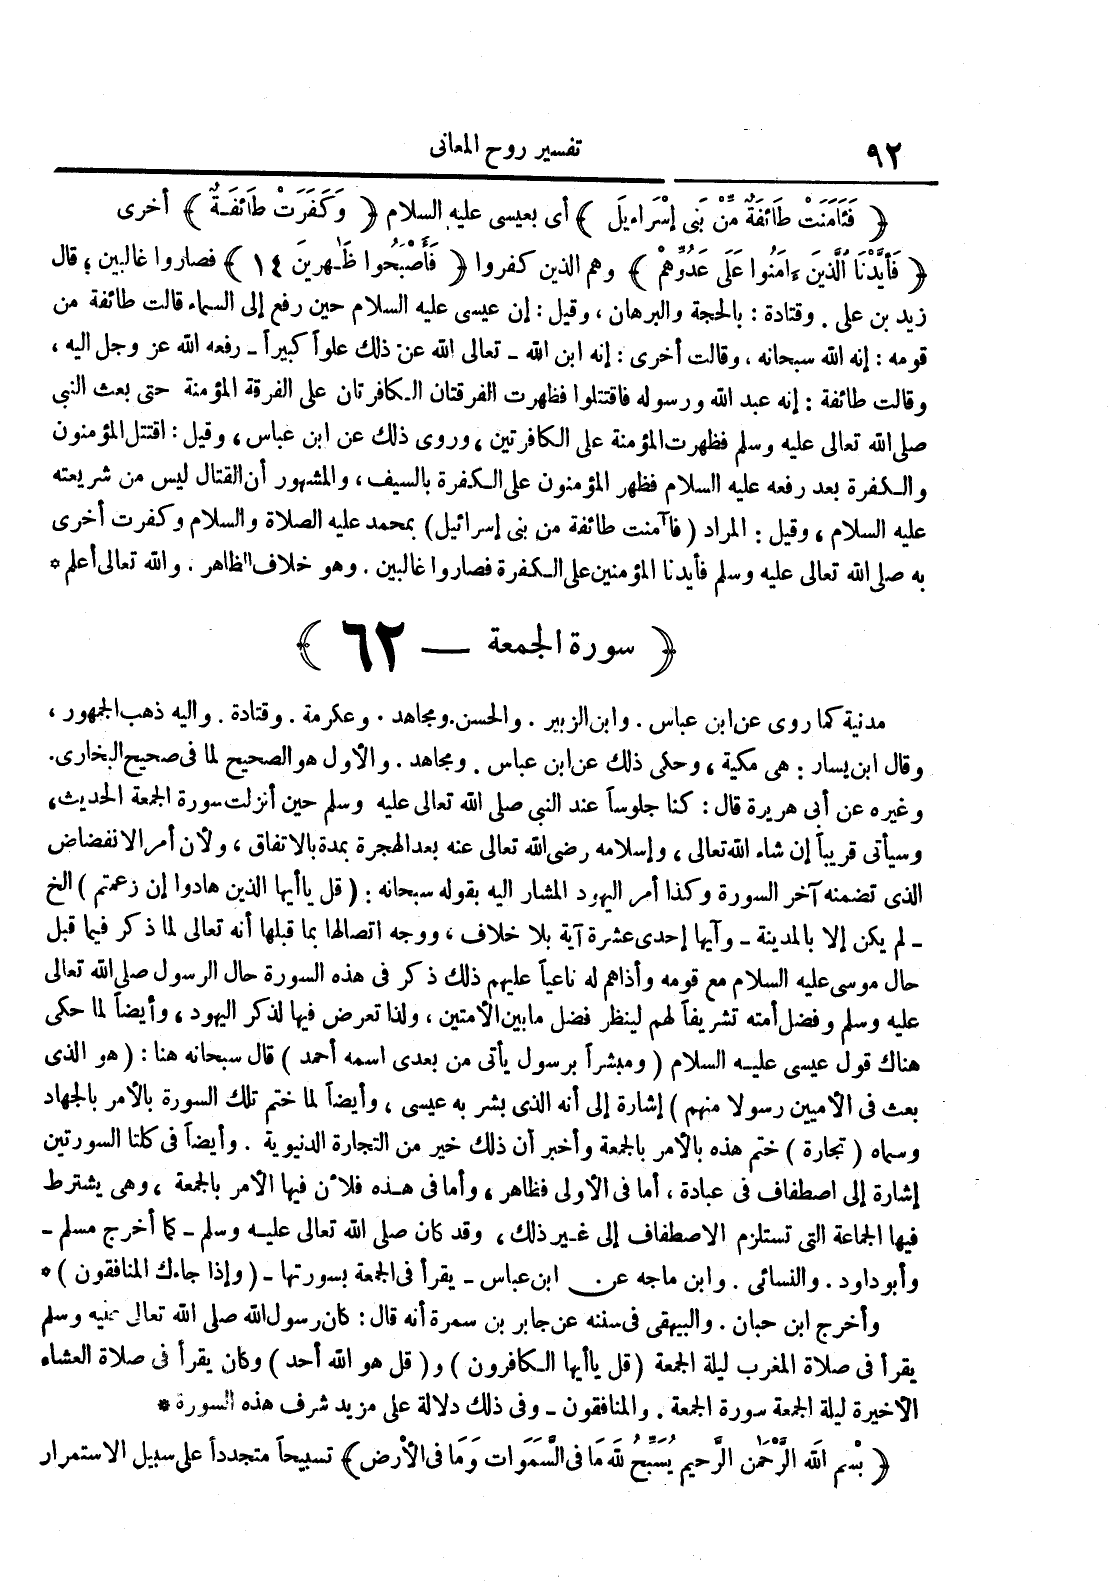 ٩٢
تفسير روح المعانى
﴿ فَـَٔامَنَتْ طَائفَةٌ مِّنْ بَنى إِسْرَاءيلَ ﴾ أى بعيسى عليه السلام ﴿ وَكَفَرَتْ طَائفَـةٌ ﴾ أخرى
﴿ فَأَيَّدْنَا الَّذينَ ءامَنُوا عَلَى عَدُوِّهمْ ﴾ وهم الذين كفروا ﴿ فَأَصْبَحُوا ظَـٰهرينَ ١٤ ﴾ فصاروا غالبين ، قال
زيد بن على . وقتادة : بالحجة والبرهان ، وقيل : إن عيسى عليه السلام حين رفع إلى السماء قالت طائفة من
قومه : إنه الله سبحانه ، وقالت أخرى : إنه ابن الله - تعالى الله عن ذلك علواً كبيراً - رفعه الله عز وجل اليه ،
وقالت طائفة : إنه عبد الله ورسوله فاقتتلوا فظهرت الفرقتان الـكافرتان على الفرقة المؤمنة حتى بعث النبي
صلى الله تعالى عليه وسلم فظهرت المؤمنة على الـكافرتين ، وروى ذلك عن ابن عباس ، وقيل : اقتتل المؤمنون
والـكفرة بعد رفعه عليه السلام فظهر المؤمنون على الـكفرة بالسيف ، والمشهور أن القتال ليس من شريعته
عليه السلام ، وقيل : المراد ( فآمنت طائفة من بنى إسرائيل ) بمحمد عليه الصلاة والسلام وكفرت أخرى
به صلى الله تعالى عليه وسلم فأيدنا المؤمنين على الـكفرة فصاروا غالبين . وهو خلاف الظاهر . والله تعالى أعلم *
﴿ سورة الجمعة — ٦٢ ﴾
مدنية كما روى عن ابن عباس . وابن الزبير . والحسن . ومجاهد . وعكرمة . وقتادة . واليه ذهب الجمهور ،
وقال ابن يسار : هى مكية ، وحكى ذلك عن ابن عباس . ومجاهد . والأول هو الصحيح لما فى صحيح البخارى .
وغيره عن أبى هريرة قال : كنا جلوساً عند النبي صلى الله تعالى عليه وسلم حين أنزلت سورة الجمعة الحديث ،
وسيأتى قريباً إن شاء الله تعالى ، وإسلامه رضى الله تعالى عنه بعد الهجرة بمدة بالاتفاق ، ولأن أمر الانفضاض
الذى تضمنه آخر السورة وكذا أمر اليهود المشار اليه بقوله سبحانه : ( قل ياأيها الذين هادوا إن زعمتم ) الخ
- لم يكن إلا بالمدينة - وآيها إحدى عشرة آية بلا خلاف ، ووجه اتصالها بما قبلها أنه تعالى لما ذكر فيما قبل
حال موسى عليه السلام مع قومه وأذاهم له ناعياً عليهم ذلك ذكر فى هذه السورة حال الرسول صلى الله تعالى
عليه وسلم وفضل أمته تشريفاً لهم لينظر فضل مابين الأمتين ، ولذا تعرض فيها لذكر اليهود ، وأيضاً لما حكى
هناك قول عيسى عليـه السلام ( ومبشراً برسول يأتى من بعدى اسمه أحمد ) قال سبحانه هنا : ( هو الذى
بعث فى الأميين رسولا منهم ) إشارة إلى أنه الذى بشر به عيسى ، وأيضاً لما ختم تلك السورة بالأمر بالجهاد
وسماه ( تجارة ) ختم هذه بالأمر بالجمعة وأخبر أن ذلك خير من التجارة الدنيوية . وأيضاً فى كلتا السورتين
إشارة إلى اصطفاف فى عبادة ، أما فى الأولى فظاهر ، وأما فى هـذه فلأن فيها الأمر بالجمعة ، وهى يشترط
فيها الجماعة التى تستلزم الاصطفاف إلى غـير ذلك ، وقد كان صلى الله تعالى عليـه وسلم - كما أخرج مسلم -
وأبو داود . والنسائى . وابن ماجه عن ابن عباس - يقرأ فى الجمعة بسورتها - ( وإذا جاءك المنافقون ) *
وأخرج ابن حبان . والبيهقى فى سننه عن جابر بن سمرة أنه قال : كان رسول الله صلى الله تعالى عليه وسلم
يقرأ فى صلاة المغرب ليلة الجمعة ( قل ياأيها الـكافرون ) و( قل هو الله أحد ) وكان يقرأ فى صلاة العشاء
الأخيرة ليلة الجمعة سورة الجمعة . والمنافقون - وفى ذلك دلالة على مزيد شرف هذه السورة *
﴿ بِسْمِ اللهِ الرَّحْمٰنِ الرَّحيمِ يُسَبِّحُ للهِ مَا فى السَّمَوَات وَمَا فى الأَرْض ﴾ تسبيحاً متجدداً على سبيل الاستمرار